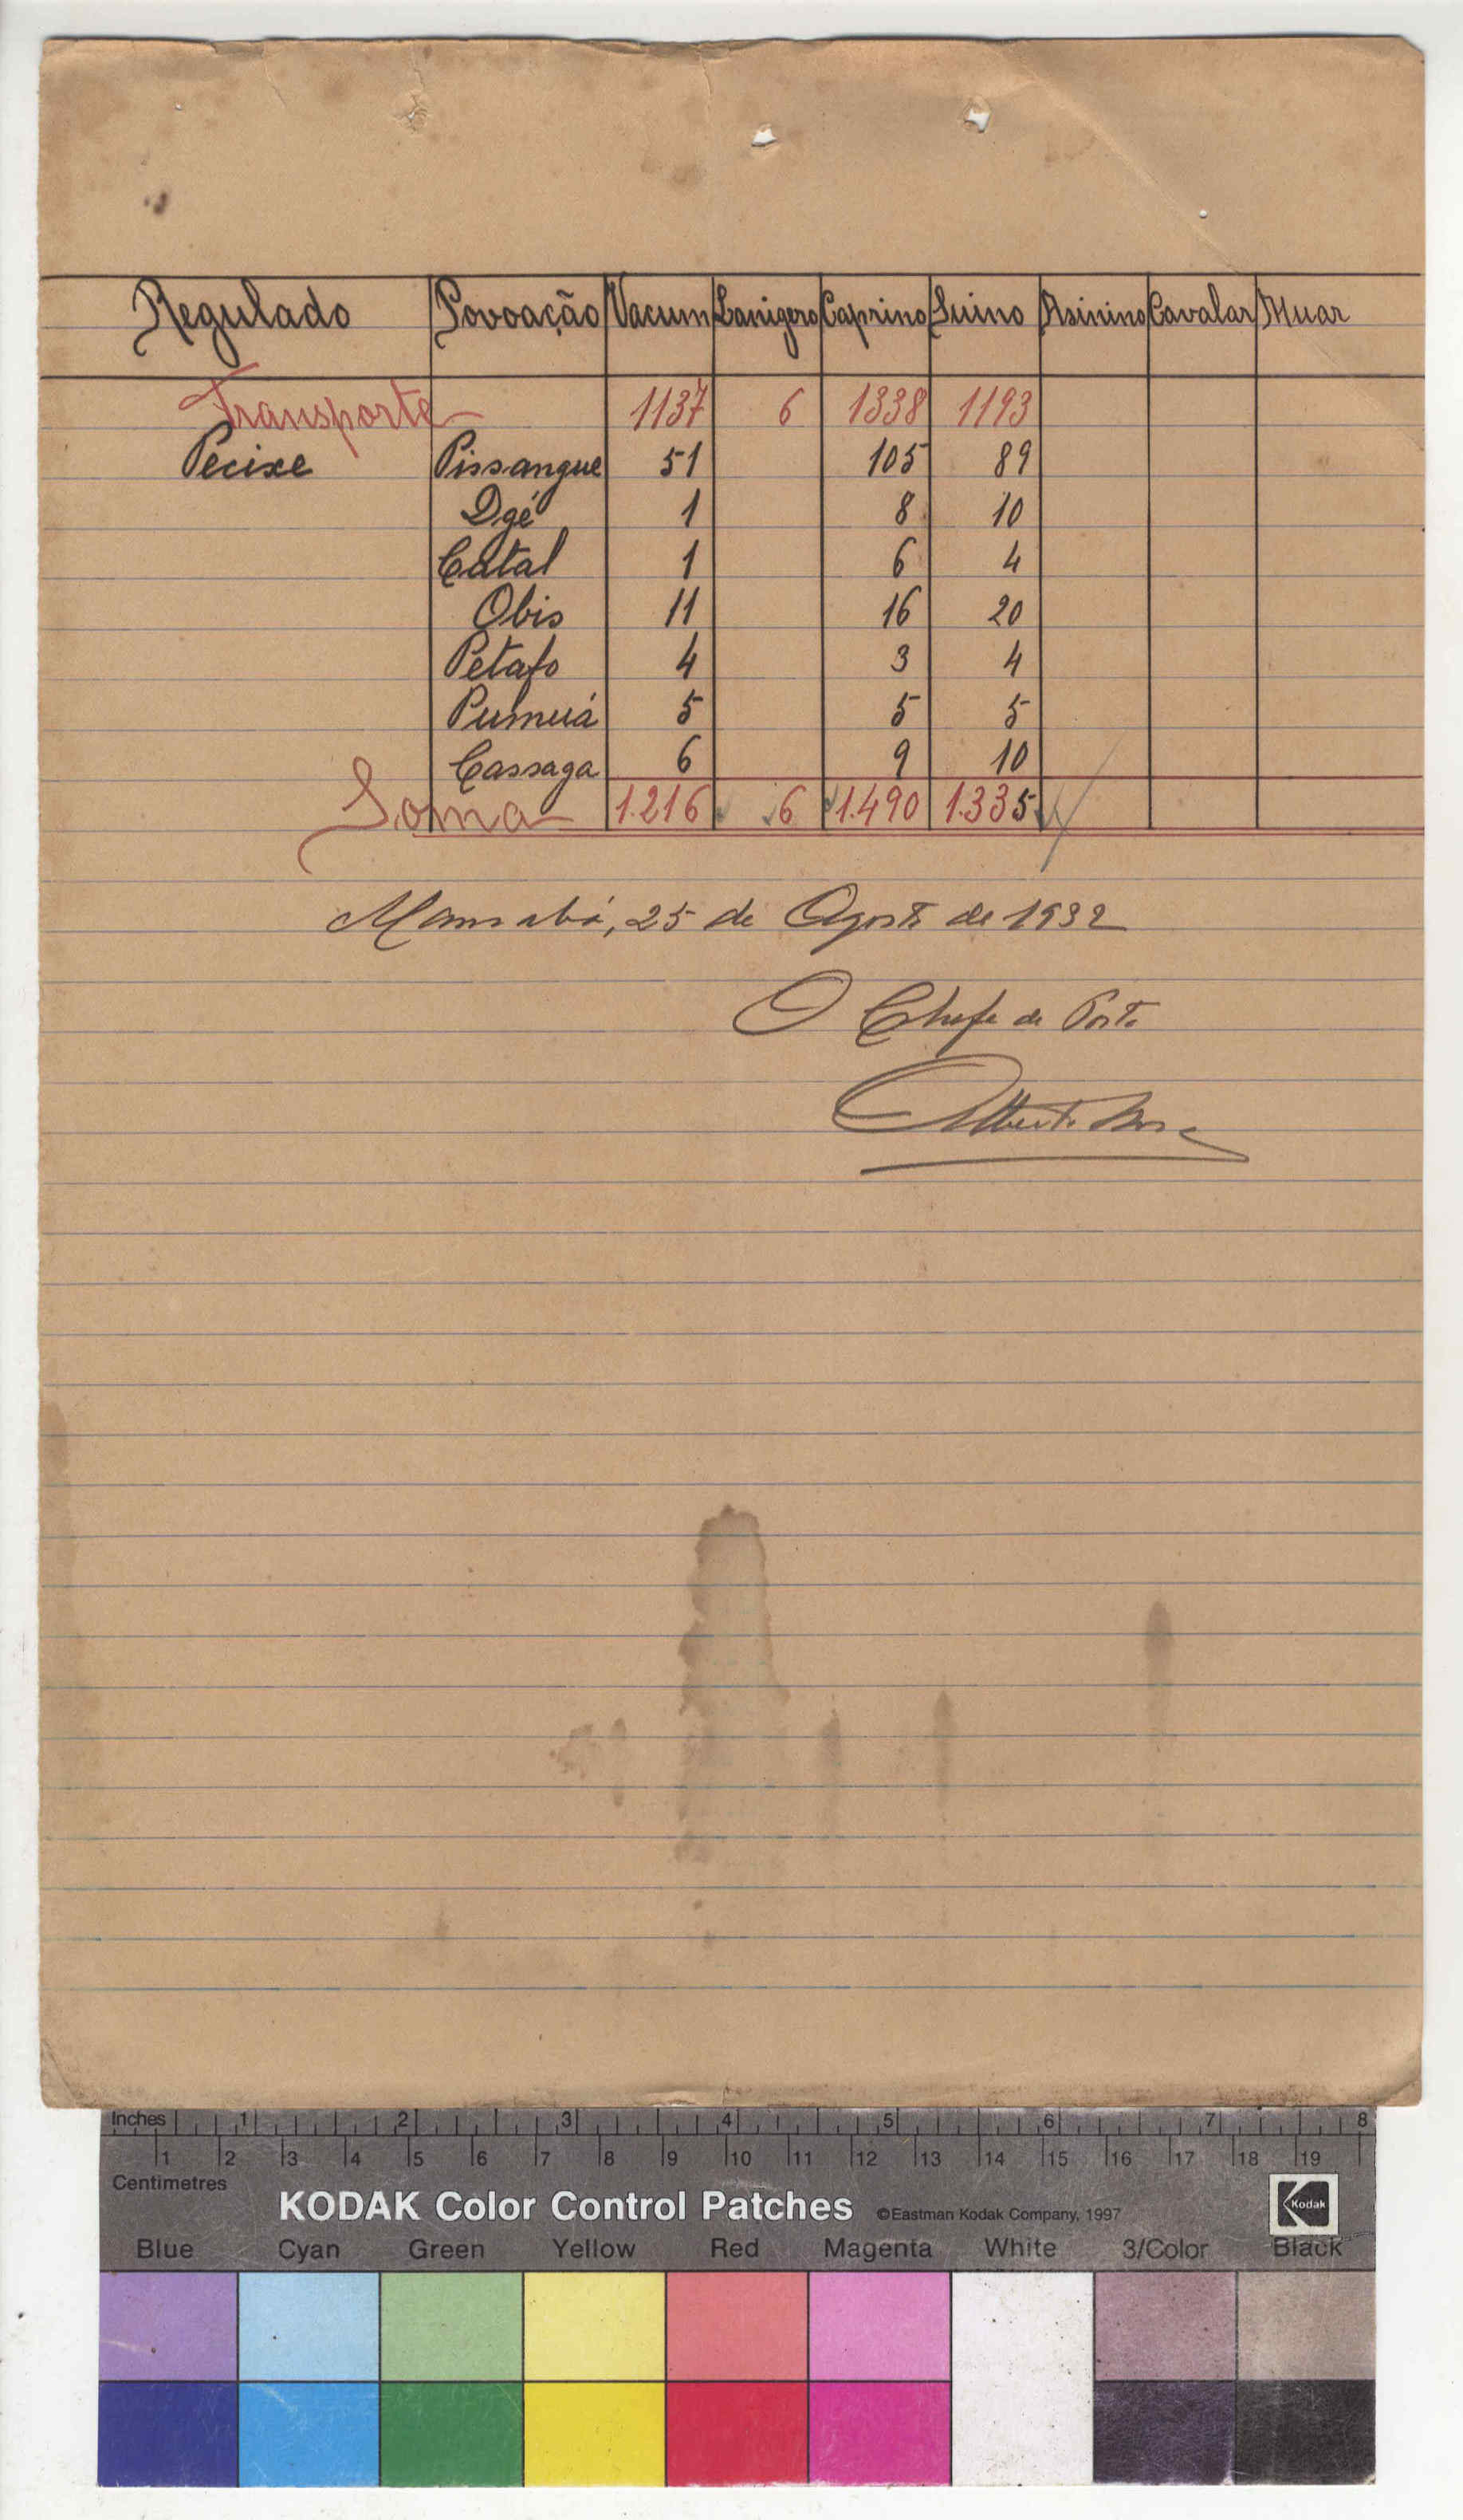 Regulado Povoação Vacum Lanigero Caprino Suino Asinino Cavalar Muar
Transporte 1137 6 1338 1193
Pecixe Pissangue 51 105 89
Dgé 1 8 10
Catal 1 6 4
Obis 11 16 20
Petafo 4 3 4
Pumuá 5 5 5
Cassaga 6 9 10
Soma 1.216 6 1.490 1.335
25 de Agosto de 1932
O Chefe de Posto
Alberto
Inches 1 2 3 4 5 6 7 8
1 2 3 4 5 6 7 8 9 10 11 12 13 14 15 16 17 18 19
Centimetres
KODAK Color Control Patches ©Eastman Kodak Company, 1997 Kodak
Blue Cyan Green Yellow Red Magenta White 3/Color Black